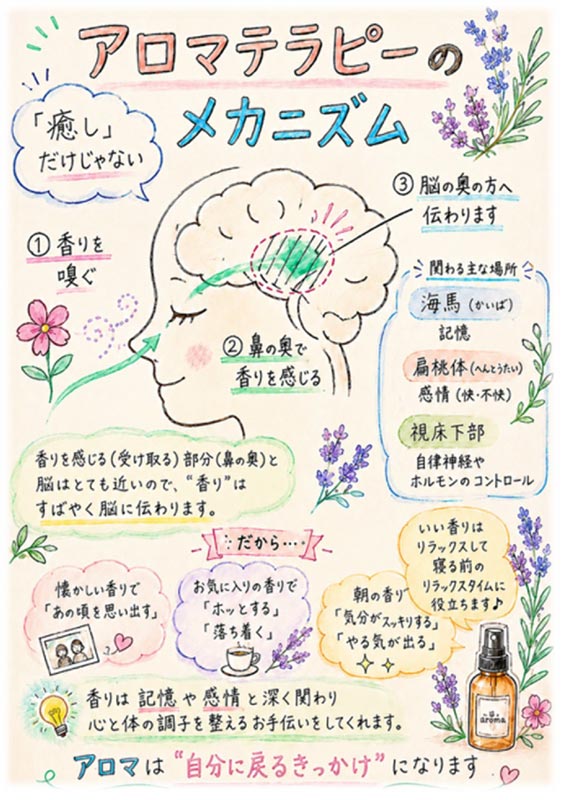 アロマテラピーの
メカニズム
「癒し」
だけじゃない
① 香りを
嗅ぐ
② 鼻の奥で
香りを感じる
③ 脳の奥の方へ
伝わります
関わる主な場所
海馬（かいば）
記憶
扁桃体（へんとうたい）
感情（快・不快）
視床下部
自律神経や
ホルモンのコントロール
香りを感じる（受け取る）部分（鼻の奥）と
脳はとても近いので、“香り”は
すばやく脳に伝わります。
だから…
懐かしい香りで
「あの頃を思い出す」
お気に入りの香りで
「ホッとする」
「落ち着く」
朝の香り
「気分がスッキリする」
「やる気が出る」
いい香りは
リラックスして
寝る前の
リラックスタイムに
役立ちます♪
aroma
香りは 記憶や 感情 と 深く関わり
心と体の調子を整えるお手伝いをしてくれます。
アロマは “自分に戻るきっかけ” になります